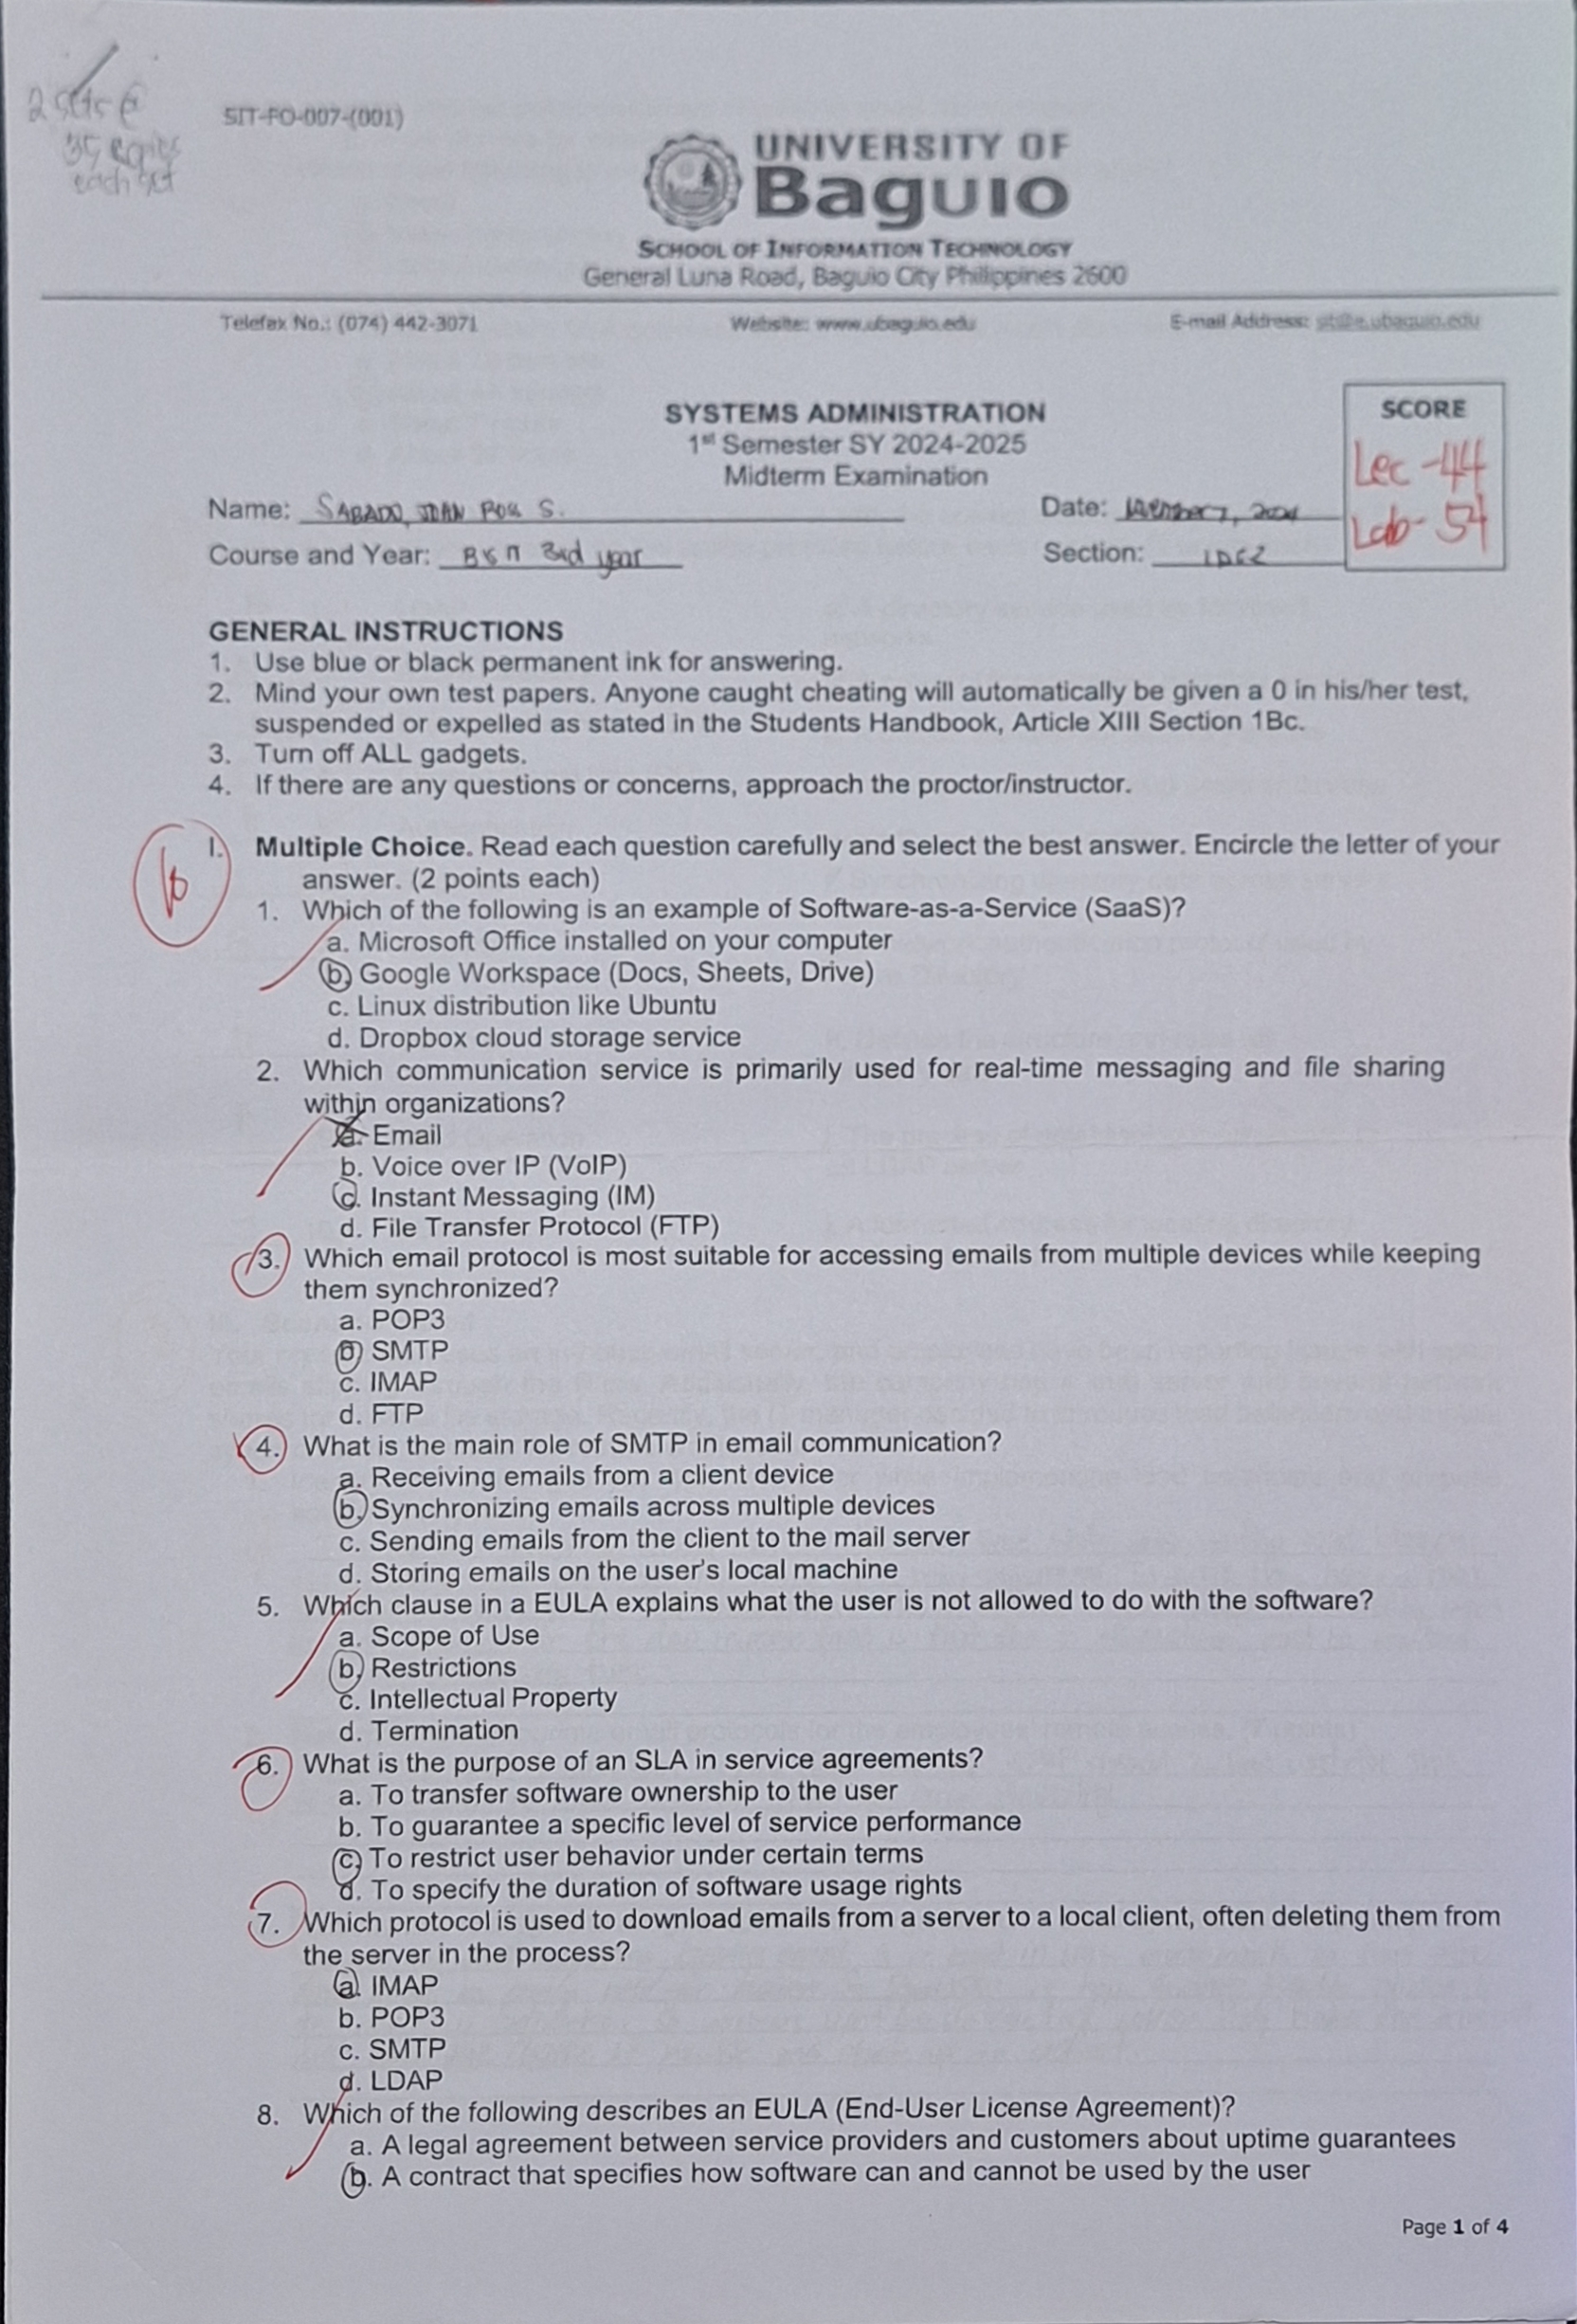 2 sets @
35 copies
each set
SIT-FO-007-(001)
UNIVERSITY OF
Baguio
SCHOOL OF INFORMATION TECHNOLOGY
General Luna Road, Baguio City Philippines 2600
Telefax No.: (074) 442-3071 Website: www.ubaguio.edu E-mail Address: sit@e.ubaguio.edu
SYSTEMS ADMINISTRATION
1st Semester SY 2024-2025
Midterm Examination
SCORE
Lec -44
Lab- 54
Name: SABADO, S. Date: 2024
Course and Year: BSIT 3rd year Section:
GENERAL INSTRUCTIONS
1. Use blue or black permanent ink for answering.
2. Mind your own test papers. Anyone caught cheating will automatically be given a 0 in his/her test,
suspended or expelled as stated in the Students Handbook, Article XIII Section 1Bc.
3. Turn off ALL gadgets.
4. If there are any questions or concerns, approach the proctor/instructor.
I. Multiple Choice. Read each question carefully and select the best answer. Encircle the letter of your
answer. (2 points each)
1. Which of the following is an example of Software-as-a-Service (SaaS)?
a. Microsoft Office installed on your computer
b. Google Workspace (Docs, Sheets, Drive)
c. Linux distribution like Ubuntu
d. Dropbox cloud storage service
2. Which communication service is primarily used for real-time messaging and file sharing
within organizations?
a. Email
b. Voice over IP (VoIP)
c. Instant Messaging (IM)
d. File Transfer Protocol (FTP)
3. Which email protocol is most suitable for accessing emails from multiple devices while keeping
them synchronized?
a. POP3
b. SMTP
c. IMAP
d. FTP
4. What is the main role of SMTP in email communication?
a. Receiving emails from a client device
b. Synchronizing emails across multiple devices
c. Sending emails from the client to the mail server
d. Storing emails on the user's local machine
5. Which clause in a EULA explains what the user is not allowed to do with the software?
a. Scope of Use
b. Restrictions
c. Intellectual Property
d. Termination
6. What is the purpose of an SLA in service agreements?
a. To transfer software ownership to the user
b. To guarantee a specific level of service performance
c. To restrict user behavior under certain terms
d. To specify the duration of software usage rights
7. Which protocol is used to download emails from a server to a local client, often deleting them from
the server in the process?
a. IMAP
b. POP3
c. SMTP
d. LDAP
8. Which of the following describes an EULA (End-User License Agreement)?
a. A legal agreement between service providers and customers about uptime guarantees
b. A contract that specifies how software can and cannot be used by the user
Page 1 of 4